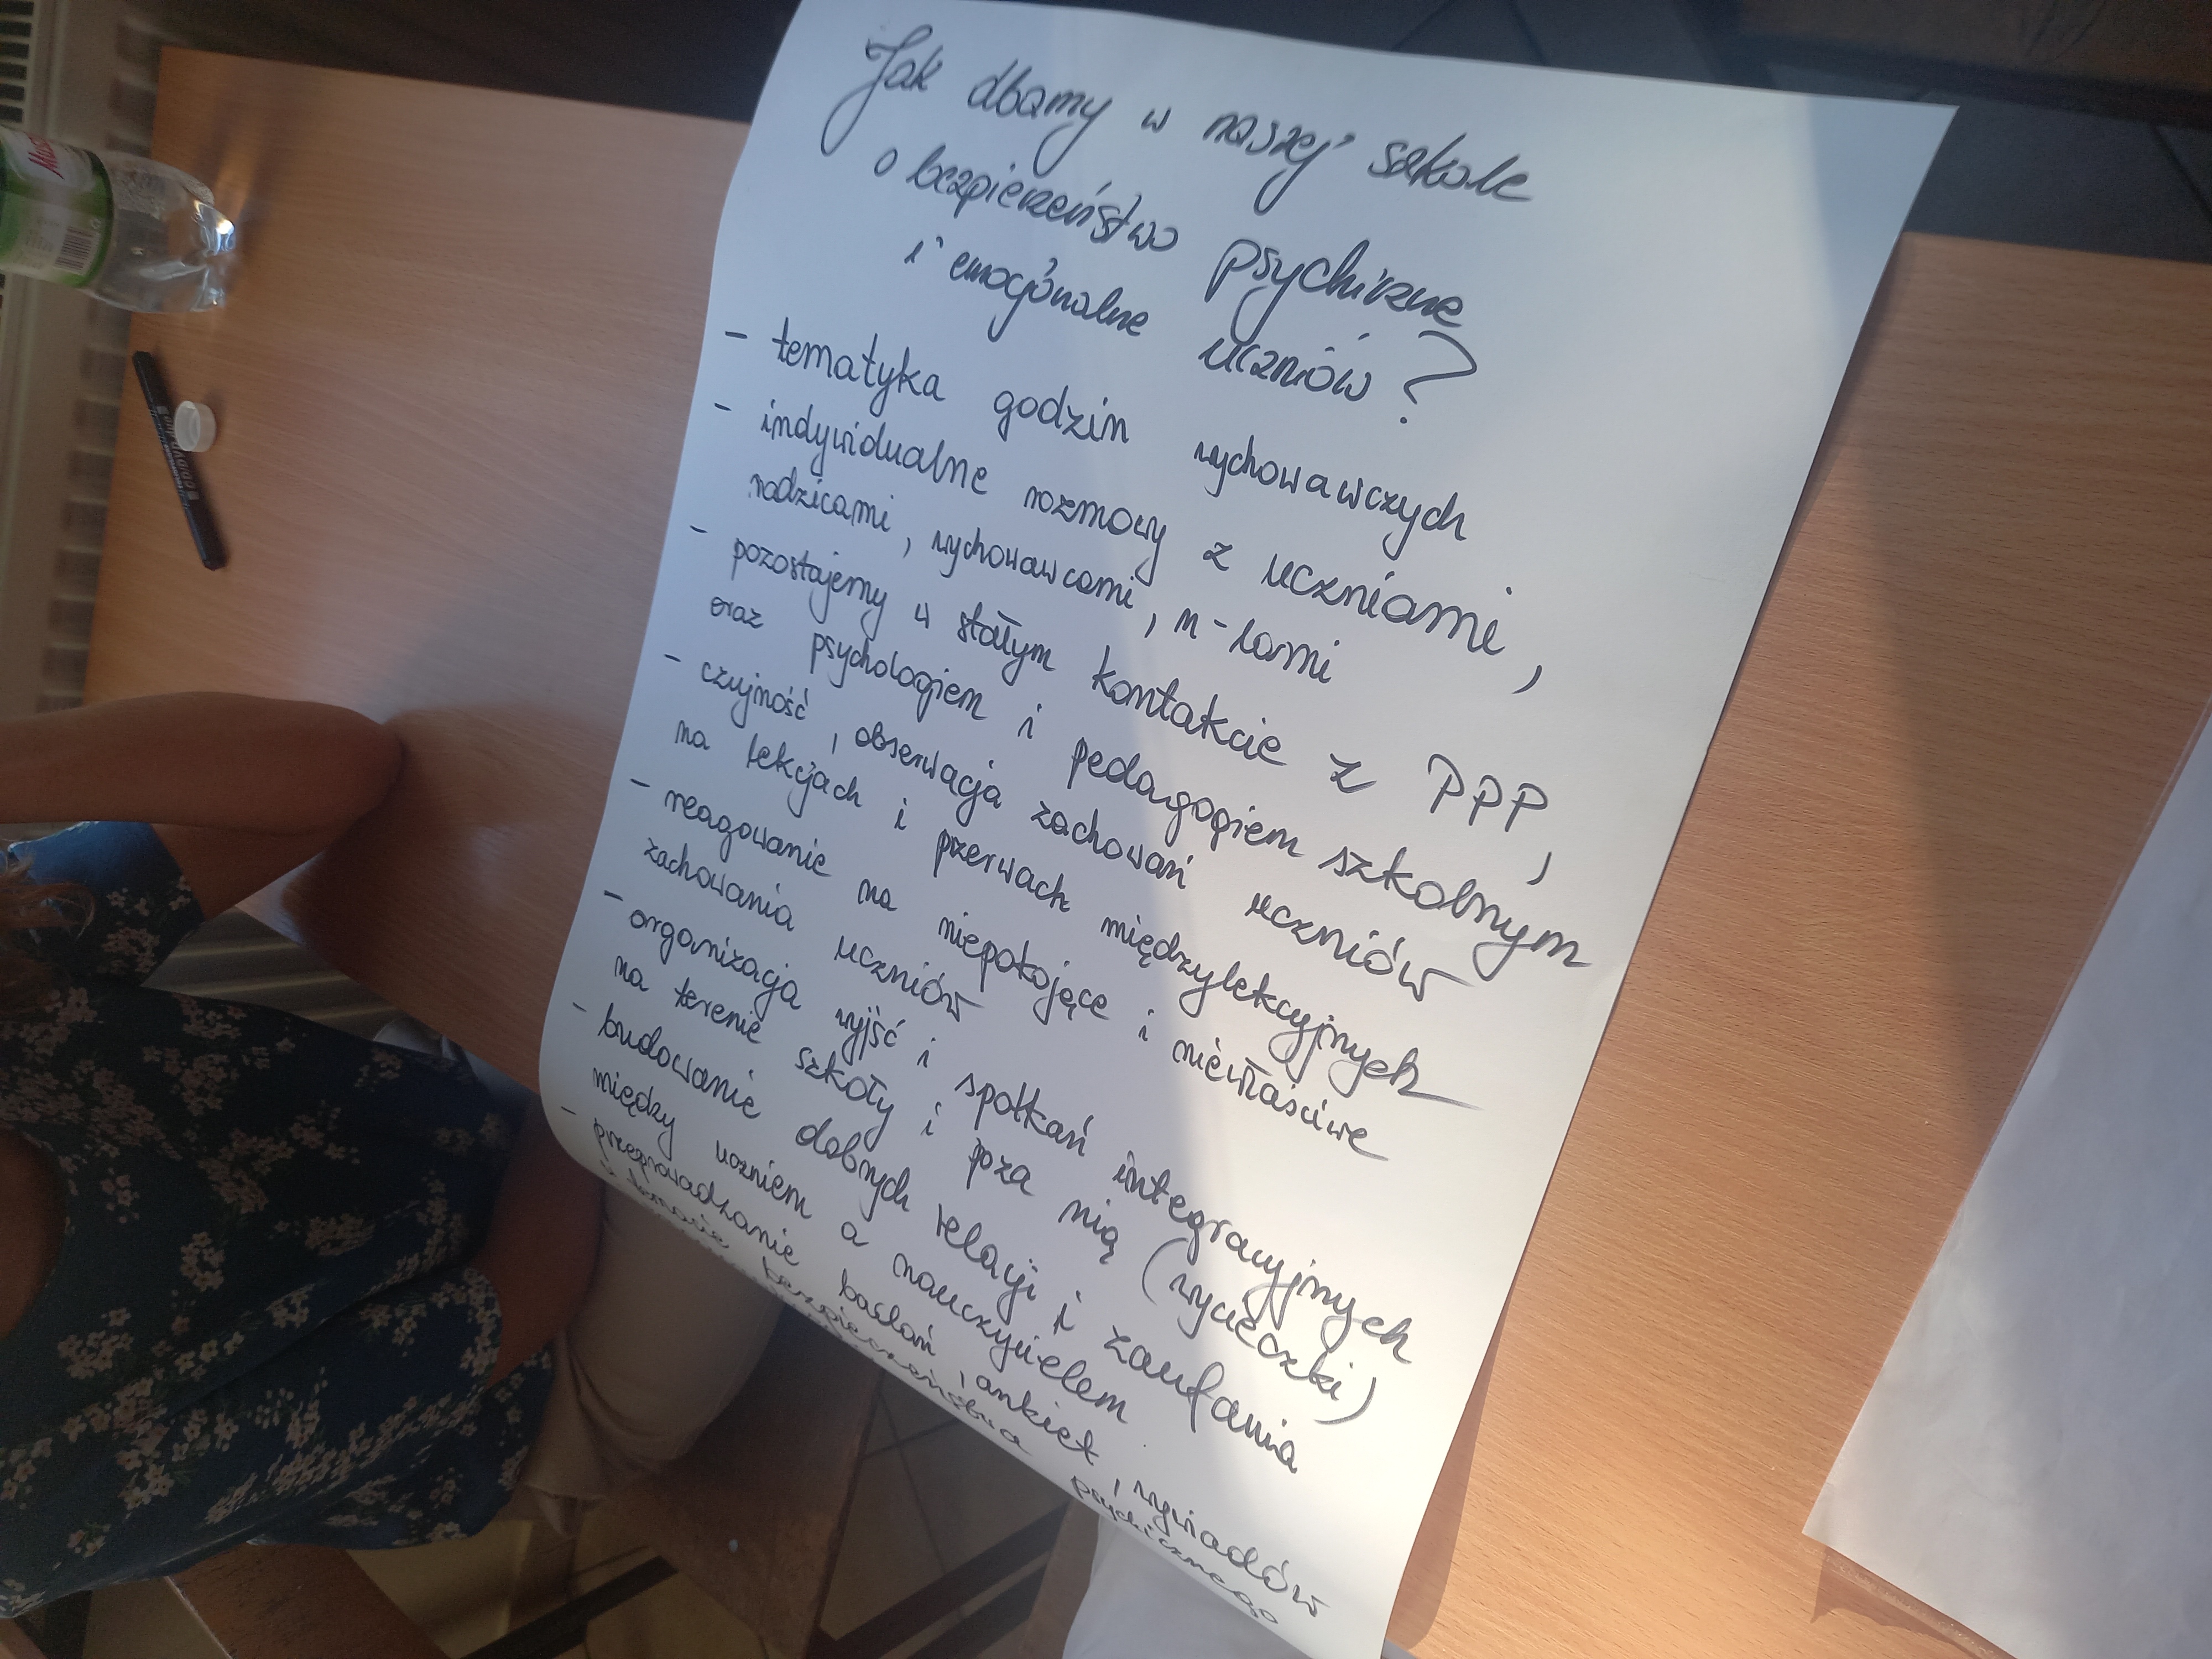 Jak dbamy w naszej szkole
o bezpieczeństwo psychiczne
i emocjonalne uczniów?
- tematyka godzin wychowawczych
- indywidualne rozmowy z uczniami,
rodzicami, wychowawcami, n-lami
- pozostajemy w stałym kontakcie z PPP,
oraz psychologiem i pedagogiem szkolnym
- czujność, obserwacja zachowań uczniów
na lekcjach i przerwach międzylekcyjnych
- reagowanie na niepokojące i niewłaściwe
zachowania uczniów
- organizacja wyjść i spotkań integracyjnych
na terenie szkoły i poza nią (wycieczki)
- budowanie dobrych relacji i zaufania
między uczniem a nauczycielem.
- przeprowadzanie badań, ankiet, wywiadów
bezpieczeństwa psychicznego